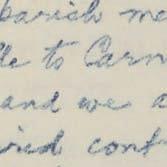 parish me
le to Carn
and we a
ired conf